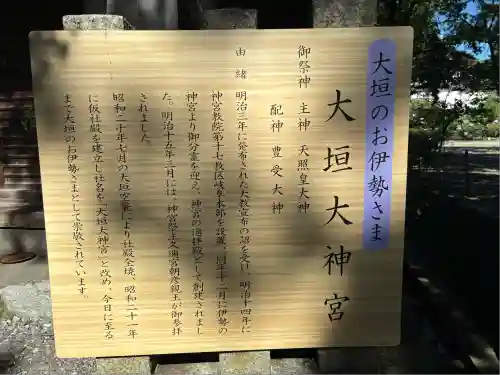 大垣のお伊勢さま
大垣大神宮
御祭神 主神 天照皇大神
配神 豊受大神
由緒 明治三年に発布された大教宣布の詔を受け、明治十四年に
神宮教院第十七教区岐阜本部を設置、同年十二月に伊勢の
神宮より御分霊を迎え、神宮の遥拝殿として創建されまし
た。明治十五年二月には、神宮祭主久邇宮朝彦親王が御参拝
されました。
昭和二十年七月の大垣空襲により社殿全焼、昭和二十一年
に仮社殿を建立し社名を「大垣大神宮」と改め、今日に至る
まで大垣のお伊勢さまとして崇敬されています。